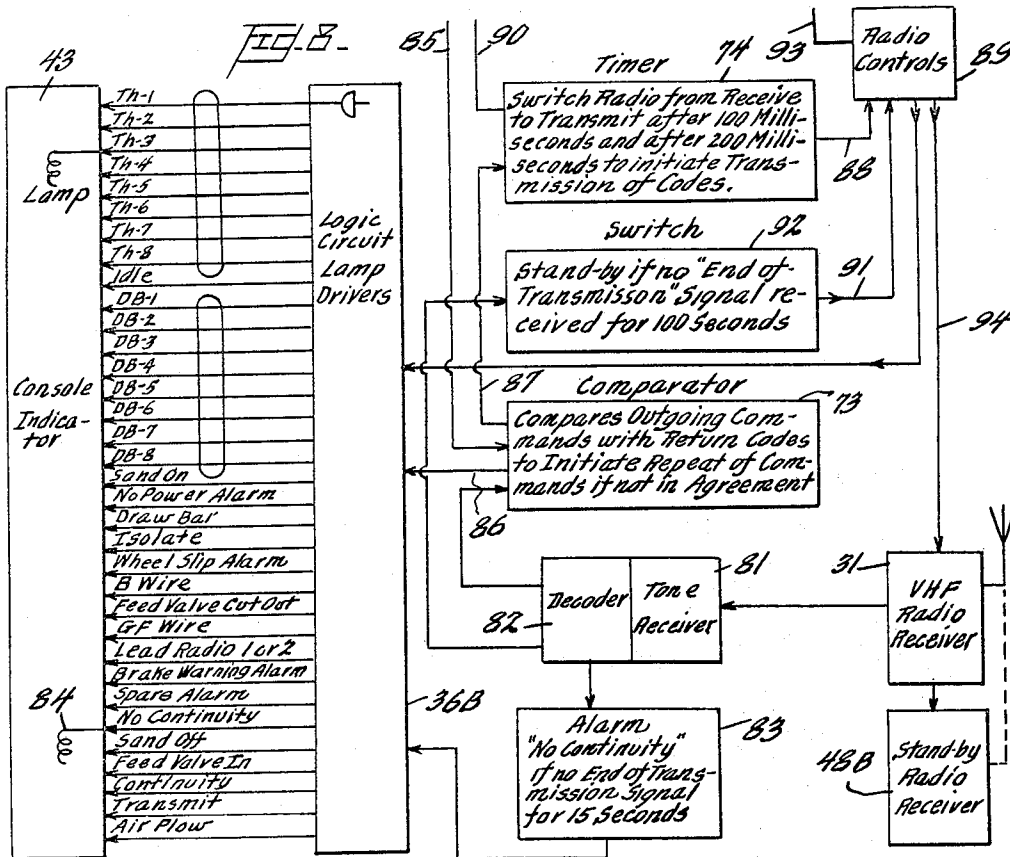 FIG-8-
43
Console
Indica-
tor
Lamp
84
Th-1
Th-2
Th-3
Th-4
Th-5
Th-6
Th-7
Th-8
Idle
DB-1
DB-2
DB-3
DB-4
DB-5
DB-6
DB-7
DB-8
Sand On
No Power Alarm
Draw Bar
Isolate
Wheel Slip Alarm
B Wire
Feed Valve Cut Out
GF Wire
Lead Radio 1 or 2
Brake Warning Alarm
Spare Alarm
No Continuity
Sand Off
Feed Valve In
Continuity
Transmit
Air Flow
Logic
Circuit
Lamp
Drivers
36B
85
90
Timer
74
Switch Radio from Receive
to Transmit after 100 Milli-
seconds and after 200 Milli-
seconds to initiate Trans-
mission of Codes.
88
93
Radio
Controls
89
Switch
92
Stand-by if no "End of-
Transmisson" Signal re-
ceived for 100 Seconds
91
94
87
Comparator
73
Compares Outgoing Com-
mands with Return Codes
to Initiate Repeat of Com-
mands if not in Agreement
86
Decoder
82
Tone
Receiver
81
31
VHF
Radio
Receiver
Alarm
"No Continuity"
if no End of Trans-
mission Signal
for 15 Seconds
83
48B
Stand-by
Radio
Receiver